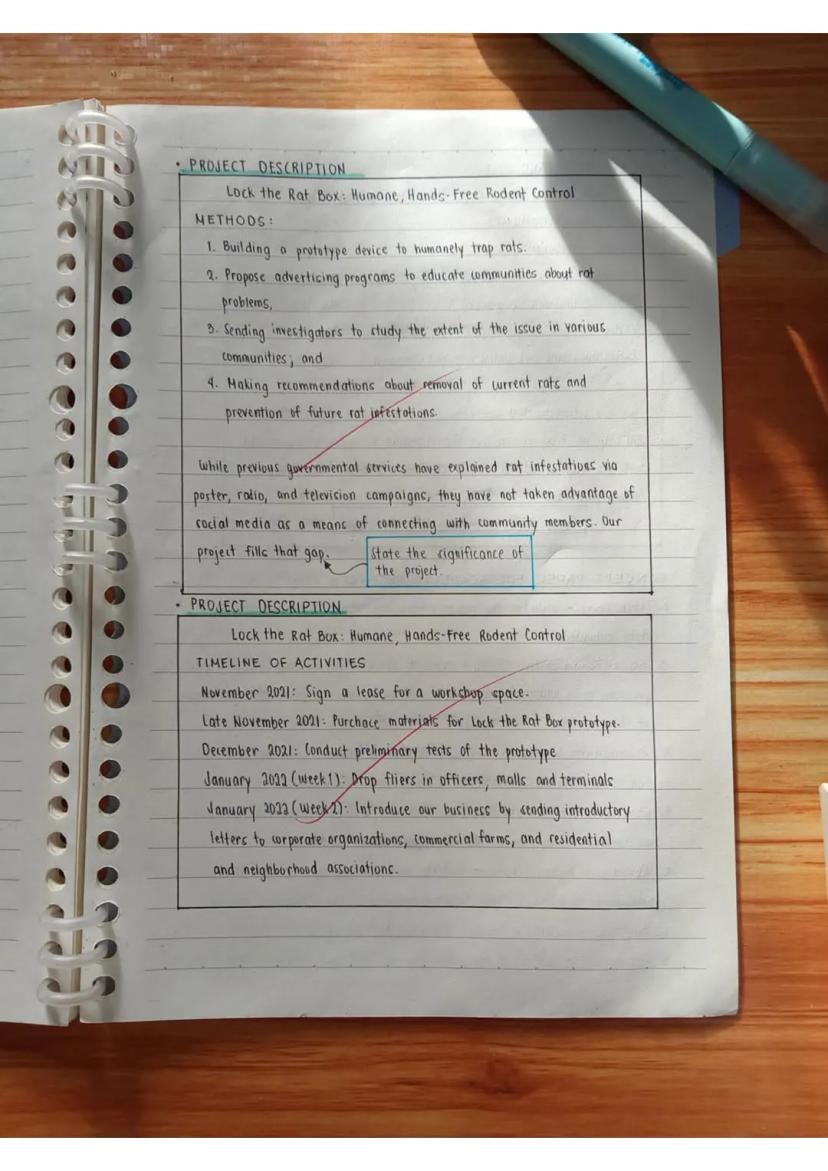 • PROJECT DESCRIPTION
Lock the Rat Box: Humane, Hands-Free Rodent Control
METHODS:
1. Building a prototype device to humanely trap rats.
2. Propose advertising programs to educate communities about rat
problems,
3. Sending investigators to study the extent of the issue in various
communities; and
4. Making recommendations about removal of current rats and
prevention of future rat infestations.
While previous governmental services have explained rat infestations via
poster, radio, and television campaigns, they have not taken advantage of
social media as a means of connecting with community members. Our
project fills that gap.
State the significance of
the project.
• PROJECT DESCRIPTION
Lock the Rat Box: Humane, Hands-Free Rodent Control
TIMELINE OF ACTIVITIES
November 2021: Sign a lease for a workshop space.
Late November 2021: Purchace materials for Lock the Rat Box prototype.
December 2021: Conduct preliminary tests of the prototype
January 2022 (Week 1): Drop fliers in officers, malls and terminals
January 2022 (Week 2): Introduce our business by sending introductory
letters to corporate organizations, commercial farms, and residential
and neighborhood associations.